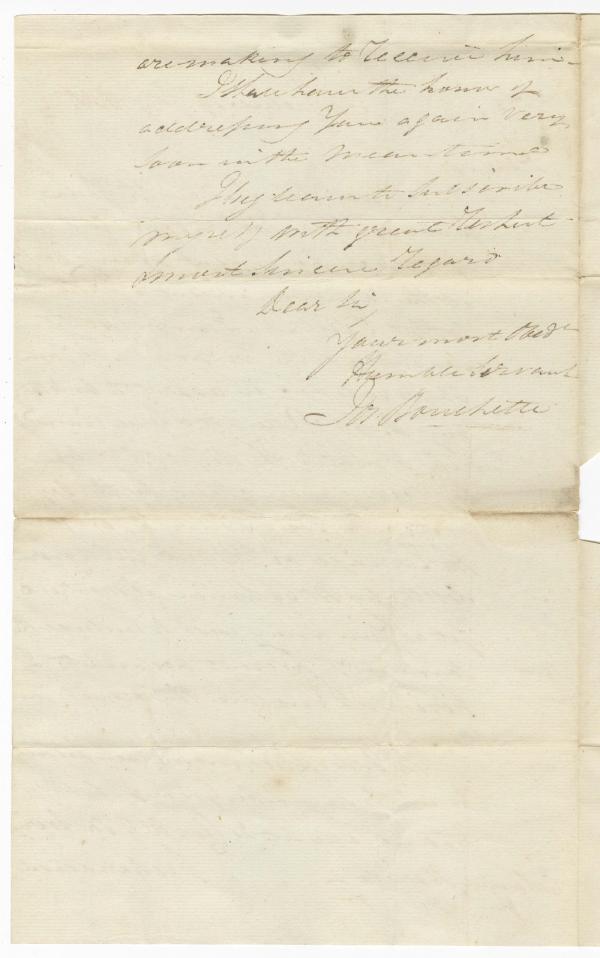 are making to receive him —
I Shall have the honor of
addressing You again very
soon in the mean time
I beg leave to Subscribe
myself with great Respect
& most Sincere Regard
Dear Sir
Your most Obedt
Humble Servant
Jos Bouchette